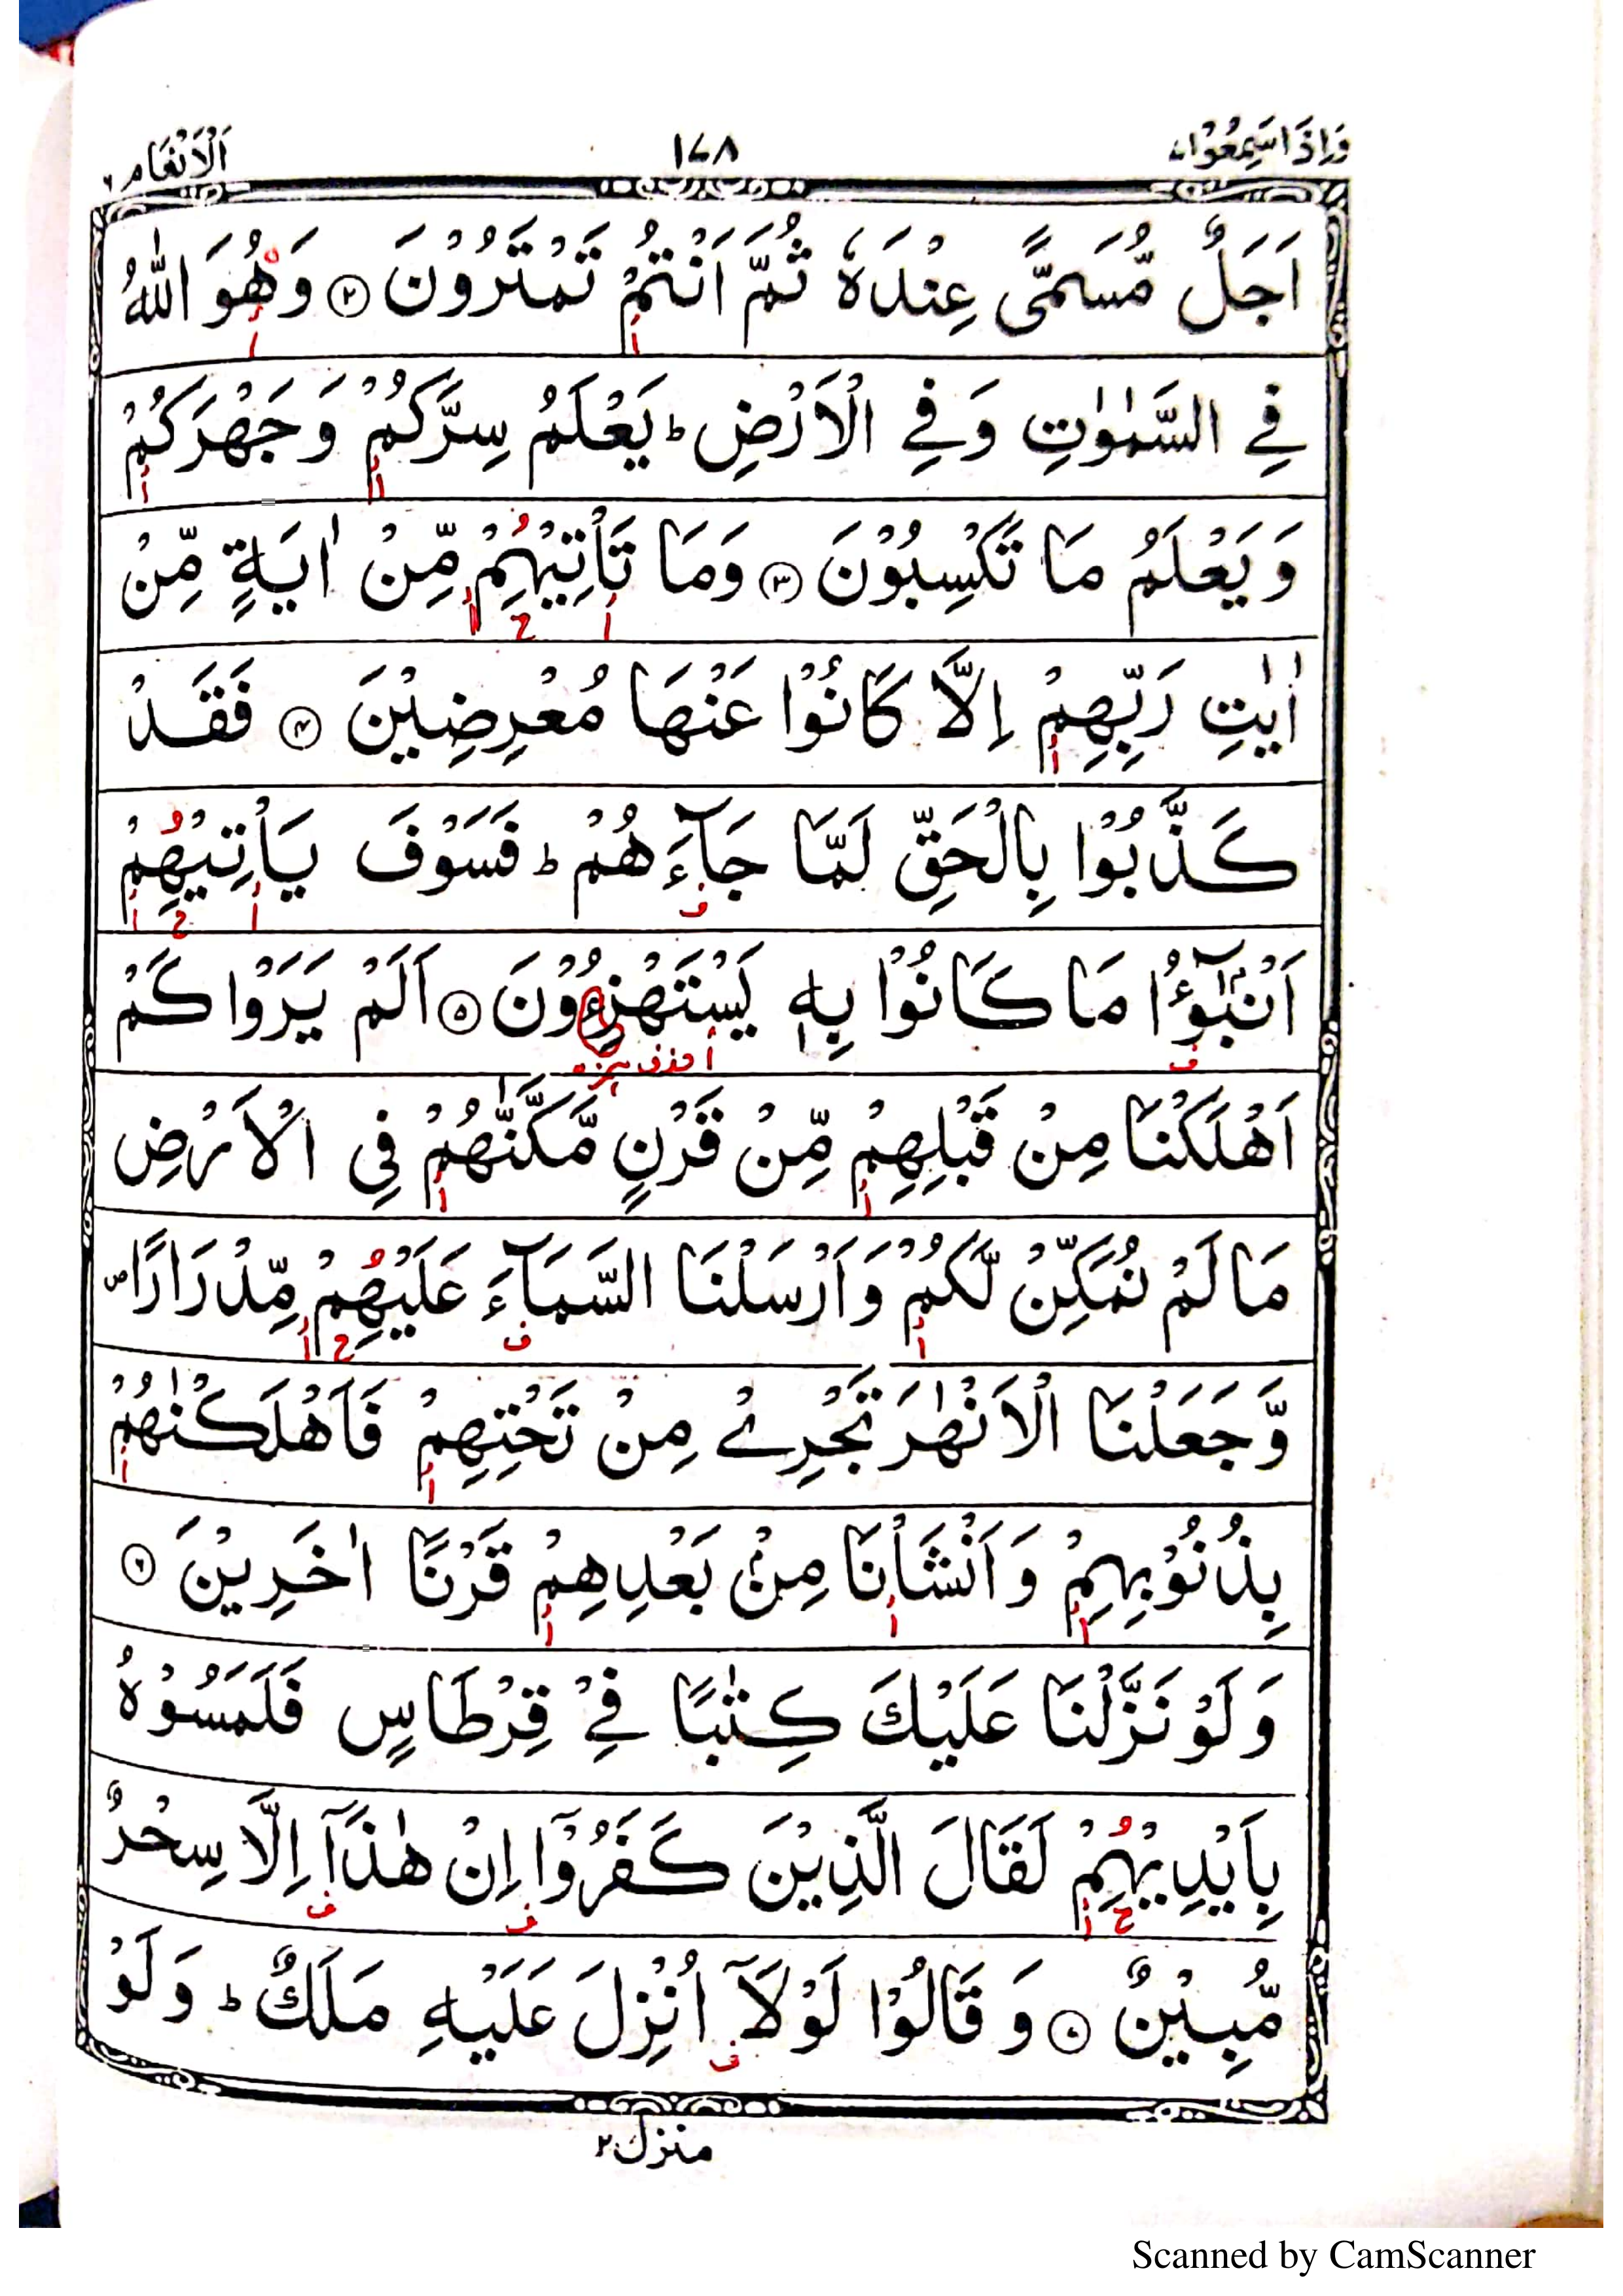 وَاِذَا سَمِعُوْا ٧ ١٧٨ اَلْاَنْعَام ٦
اَجَلٌ مُّسَمًّى عِنْدَهٗ ثُمَّ اَنْتُمْ تَمْتَرُوْنَ ۝٢ وَهُوَ اللّٰهُ
فِي السَّمٰوٰتِ وَفِي الْاَرْضِ ؕ يَعْلَمُ سِرَّكُمْ وَجَهْرَكُمْ
وَيَعْلَمُ مَا تَكْسِبُوْنَ ۝٣ وَمَا تَاْتِيْهِمْ مِّنْ اٰيَةٍ مِّنْ
اٰيٰتِ رَبِّهِمْ اِلَّا كَانُوْا عَنْهَا مُعْرِضِيْنَ ۝٤ فَقَدْ
كَذَّبُوْا بِالْحَقِّ لَمَّا جَآءَهُمْ ؕ فَسَوْفَ يَاْتِيْهِمْ
اَنْۢبٰٓؤُا مَا كَانُوْا بِهٖ يَسْتَهْزِءُوْنَ ۝٥ اَلَمْ يَرَوْا كَمْ
اَهْلَكْنَا مِنْ قَبْلِهِمْ مِّنْ قَرْنٍ مَّكَّنّٰهُمْ فِي الْاَرْضِ
مَا لَمْ نُمَكِّنْ لَّكُمْ وَاَرْسَلْنَا السَّمَآءَ عَلَيْهِمْ مِّدْرَارًا ۪
وَّجَعَلْنَا الْاَنْهٰرَ تَجْرِيْ مِنْ تَحْتِهِمْ فَاَهْلَكْنٰهُمْ
بِذُنُوْبِهِمْ وَاَنْشَاْنَا مِنْۢ بَعْدِهِمْ قَرْنًا اٰخَرِيْنَ ۝٦
وَلَوْ نَزَّلْنَا عَلَيْكَ كِتٰبًا فِيْ قِرْطَاسٍ فَلَمَسُوْهُ
بِاَيْدِيْهِمْ لَقَالَ الَّذِيْنَ كَفَرُوْٓا اِنْ هٰذَآ اِلَّا سِحْرٌ
مُّبِيْنٌ ۝٧ وَقَالُوْا لَوْلَآ اُنْزِلَ عَلَيْهِ مَلَكٌ ؕ وَلَوْ
منزل ٢
Scanned by CamScanner